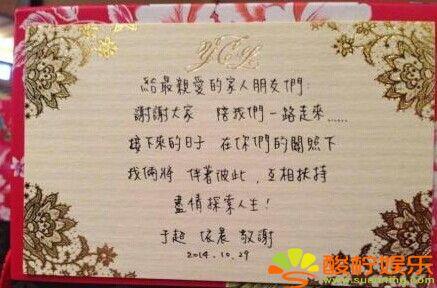 YCL
給最親愛的家人朋友們:
謝謝大家 陪我們一路走來......
接下來的日子 在你們的關照下
我倆將 伴著彼此,互相扶持
盡情探索人生!
于超 依晨 敬謝
2014.10.29
酸柠娱乐
www.suanning.com